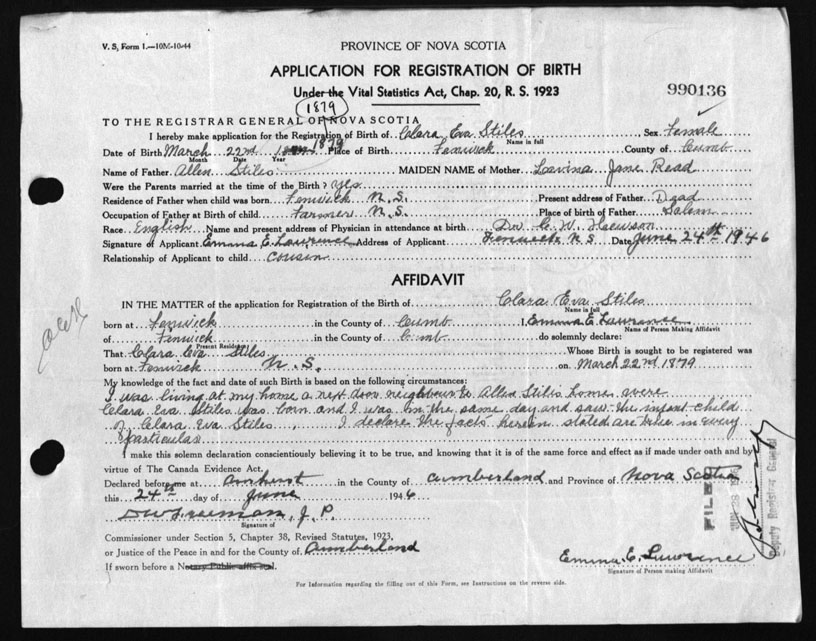 V. S. Form 1.—10M-10-44
PROVINCE OF NOVA SCOTIA
APPLICATION FOR REGISTRATION OF BIRTH
Under the Vital Statistics Act, Chap. 20, R. S. 1923
990136
1879
TO THE REGISTRAR GENERAL OF NOVA SCOTIA
I hereby make application for the Registration of Birth of Clara Eva Stiles Sex Female
Name in full
Date of Birth March 22nd 1879 Place of Birth Fenwick County of Cumb
Month Date Year
Name of Father Allen Stiles MAIDEN NAME of Mother Lavina Jane Read
Were the Parents married at the time of the Birth? yes
Residence of Father when child was born Fenwick N.S. Present address of Father Dead
Occupation of Father at Birth of child Farmer N.S. Place of birth of Father Salem
Race English Name and present address of Physician in attendance at birth Dr C. W. Hewson
Signature of Applicant Emma E. Lawrence Address of Applicant Fenwick N S Date June 24th 1946
Relationship of Applicant to child cousin
AFFIDAVIT
IN THE MATTER of the application for Registration of the Birth of Clara Eva Stiles
Name in full
born at Fenwick in the County of Cumb I, Emma E Lawrence
Name of Person making Affidavit
of Fenwick in the County of Cumb do solemnly declare:
Present Residence
That Clara Eva Stiles Whose Birth is sought to be registered was
born at Fenwick N.S. on March 22nd 1879
My knowledge of the fact and date of such Birth is based on the following circumstances:
I was living at my home a next door neighbour to Allen Stiles home were
Clara Eva Stiles was born and I was in the same day and saw the infant child
of Clara Eva Stiles, I declare the facts herein stated are true in every
particular
I make this solemn declaration conscientiously believing it to be true, and knowing that it is of the same force and effect as if made under oath and by
virtue of The Canada Evidence Act.
Declared before me at Amherst in the County of Cumberland and Province of Nova Scotia
this 24th day of June 1946
D W Freeman, J. P.
Signature of
Commissioner under Section 5, Chapter 38, Revised Statutes, 1923,
or Justice of the Peace in and for the County of Cumberland
If sworn before a Notary Public affix seal.
Emma E. Lawrence
Signature of Person making Affidavit
For Information regarding the filling out of this Form, see Instructions on the reverse side.
FILED
Deputy Registrar General